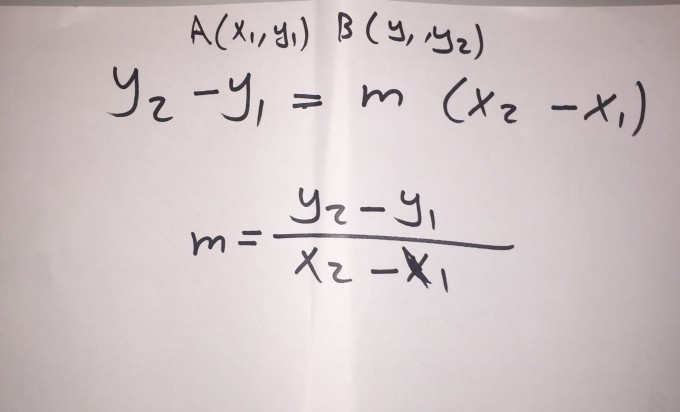 A(x₁,y₁) B(y₁,y₂)
y₂-y₁ = m (x₂-x₁)
m = y₂-y₁
x₂-x₁